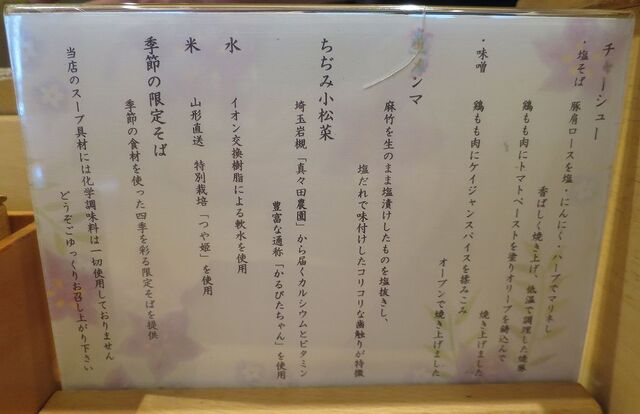 チャーシュー
・塩そば 豚肩ロースを塩・にんにく・ハーブでマリネし
香ばしく焼き上げ、低温で調理した焼豚
鶏もも肉にトマトペーストを塗りオリーブを鋳込んで
焼き上げました
・味噌 鶏もも肉にケイジャンスパイスを揉みこみ
オーブンで焼き上げました
ンマ
麻竹を生のまま塩漬けしたものを塩抜きし、
塩だれで味付けしたコリコリな歯触りが特徴
ちぢみ小松菜
埼玉岩槻「真々田農園」から届くカルシウムとビタミン
豊富な通称「かるびたちゃん」を使用
水 イオン交換樹脂による軟水を使用
米 山形直送 特別栽培「つや姫」を使用
季節の限定そば
季節の食材を使った四季を彩る限定そばを提供
当店のスープ具材には化学調味料は一切使用しておりません
どうぞごゆっくりお召し上がり下さい